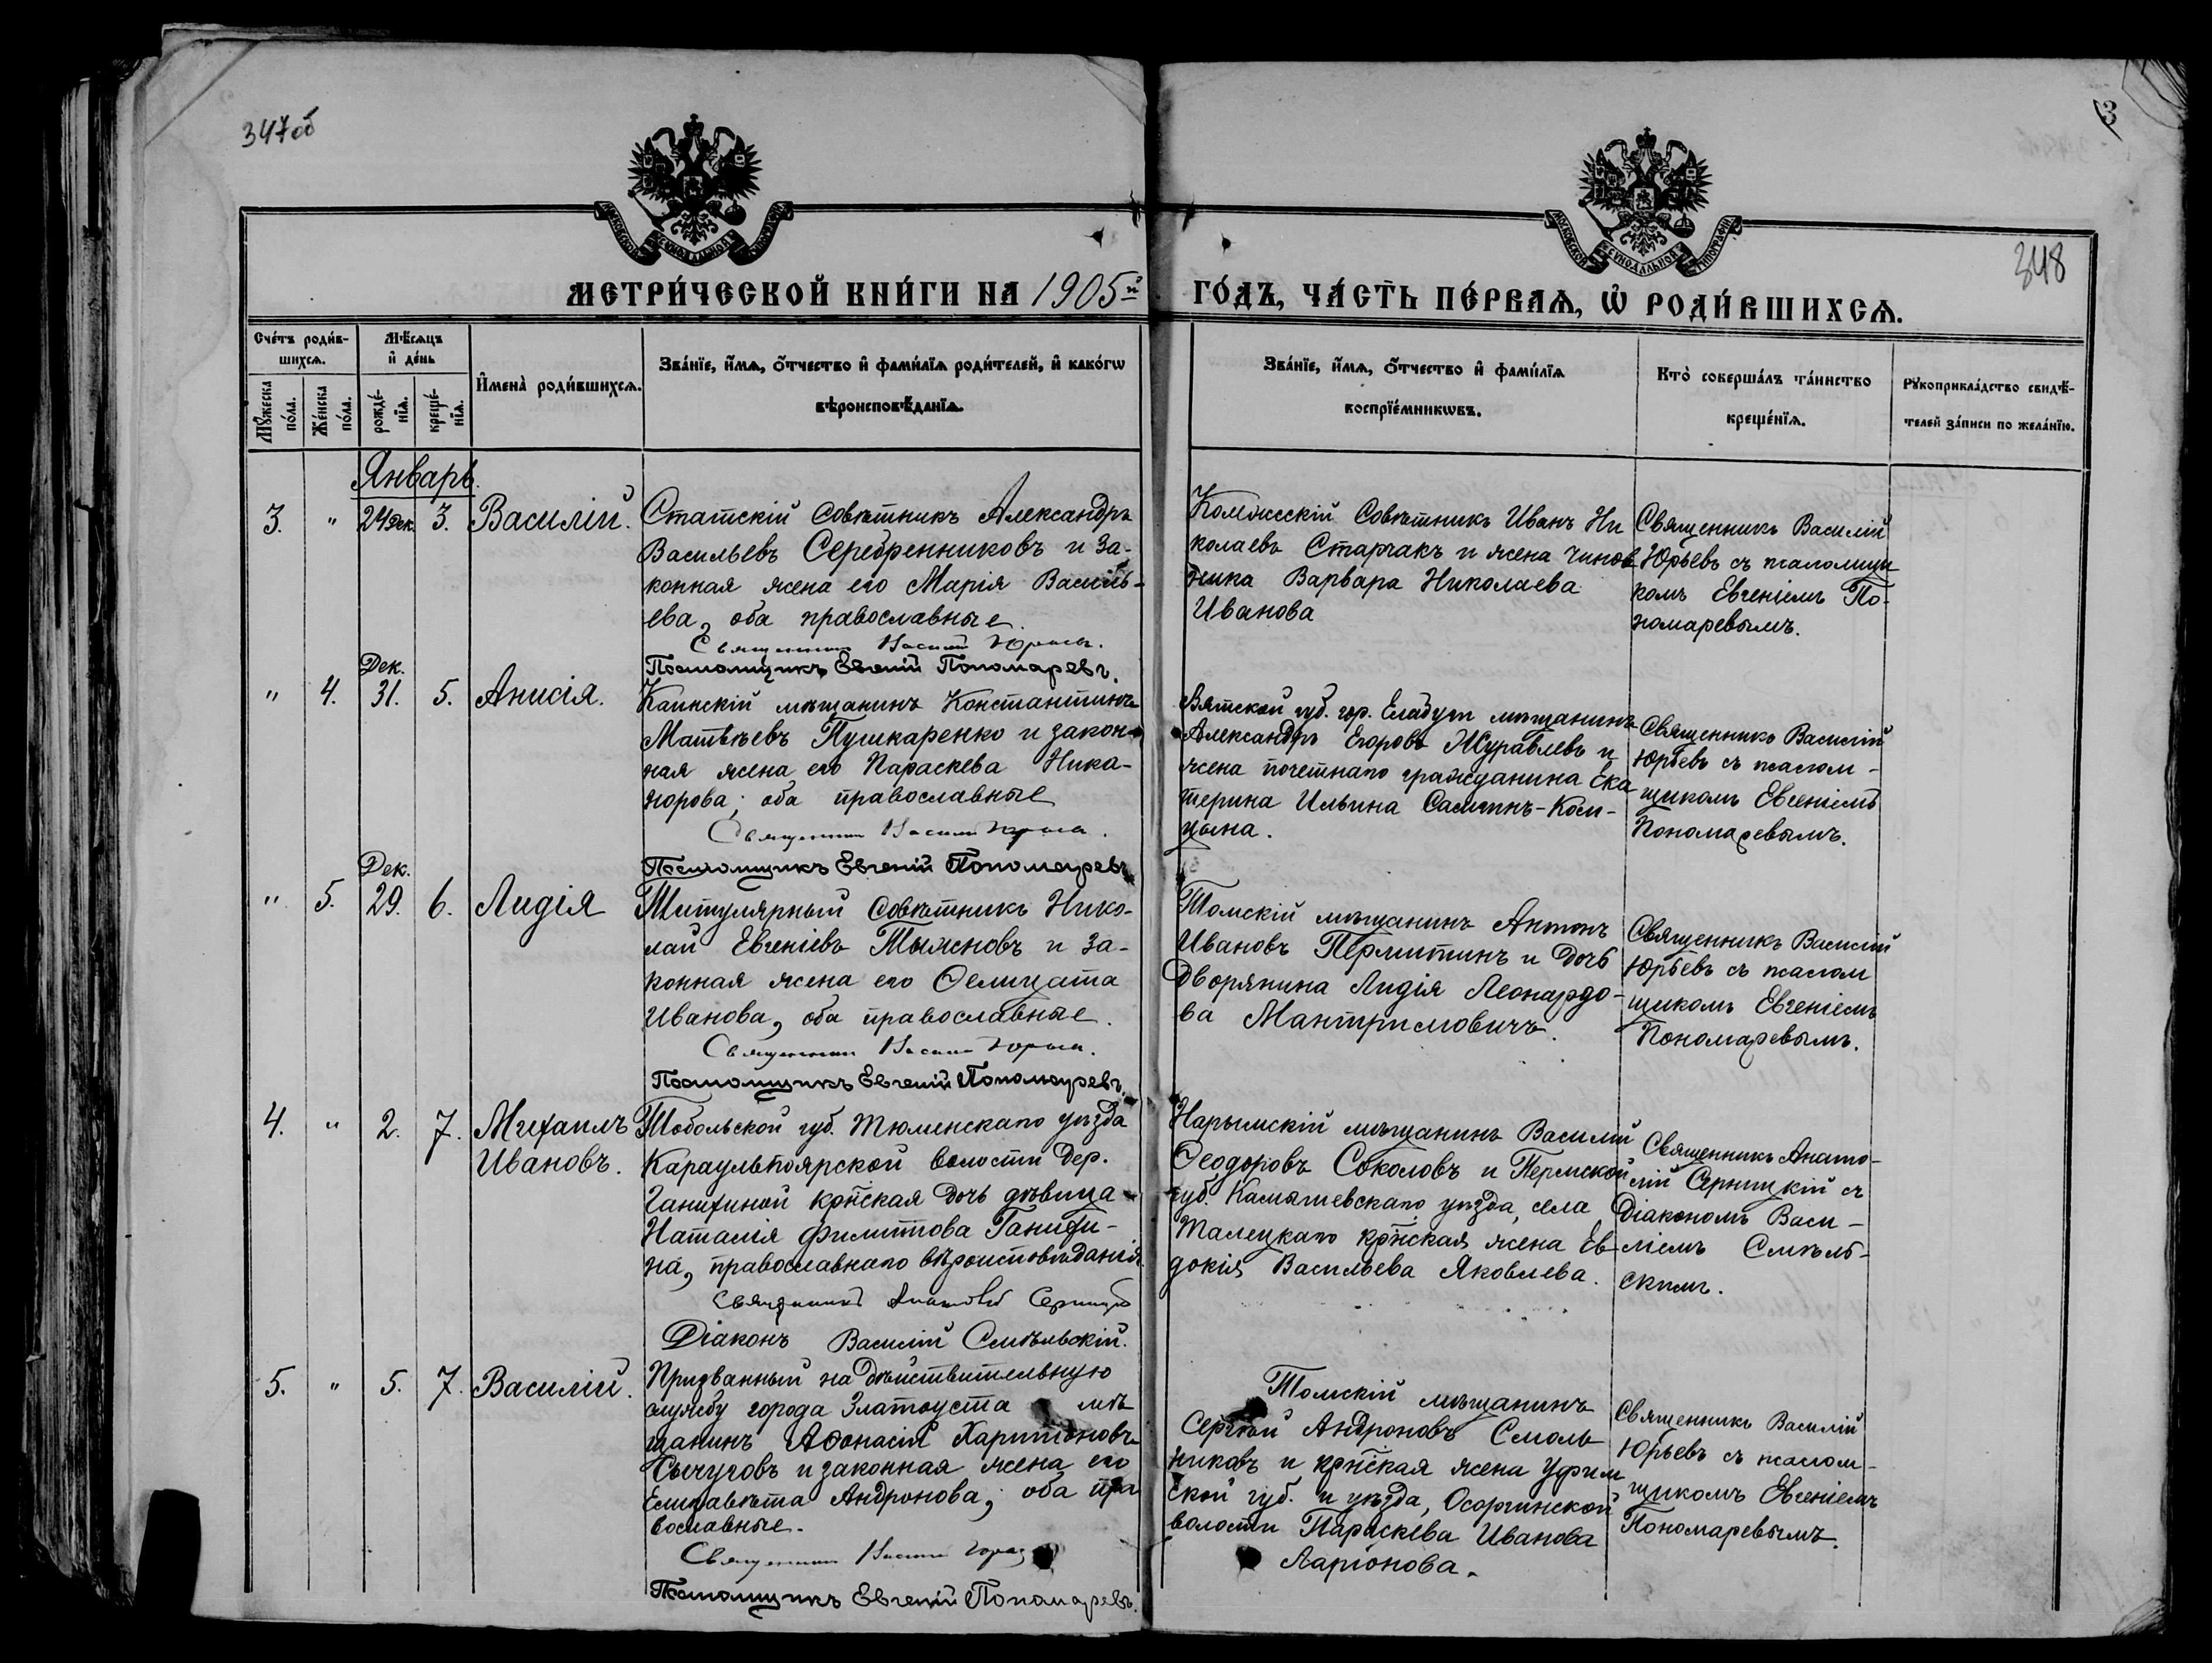 347об
3
348
МЕТРИ́ЧЕСКОЙ КНИ́ГИ НА 1905й
ГО́ДЪ, ЧА́СТЬ ПЕ́РВАѦ, Ѡ҆ РОДИ́ВШИХСѦ.
Сче́тъ роди́в-
шихсѧ.
Мꙋ́жеска
по́ла.
Же́нска
по́ла.
Мѣ́сѧцъ
и҆ де́нь
рожде́-
нїѧ.
креще́-
нїѧ.
И҆мена̀ роди́вшихсѧ.
Зва́нїе, и҆́мѧ, о҆́тчество и҆ фами́лїѧ роди́телей, и҆ како́гѡ
вѣроисповѣ́данїѧ.
Зва́нїе, и҆́мѧ, о҆́тчество и҆ фами́лїѧ
воспрїе́мникѡвъ.
Кто̀ соверша́лъ та́инство
креще́нїѧ.
Рꙋкоприкла́дство свидѣ́-
телей за́писи по жела́нїю.
Январь.
3. " 24 Дек. 3. Василій.
Статскій Совѣтникъ Александръ
Васильевъ Серебренниковъ и за-
конная жена его Марія Василь-
ева, оба православные.
Священникъ Василій Юрьевъ.
Псаломщикъ Евгеній Пономаревъ.
Совѣтникъ Иванъ Ни
колаевъ Старчакъ и жена чинов
ника Варвара Николаева
Иванова
Священникъ Василій
Юрьевъ съ псаломщи
комъ Евгеніемъ По-
номаревымъ.
Дек.
" 4. 31. 5. Анисія.
Каинскій мѣщанинъ Константинъ
Матвѣевъ Пушкаренко и закон-
ная жена его Параскева Ника-
норова; оба православные
Священникъ Василій Юрьевъ.
Псаломщикъ Евгеній Пономаревъ.
Вятской губ. гор. Елабуги мѣщанинъ
Александръ Егоровъ Журавлевъ и
жена почетнаго гражданина Ека
терина Ильина
цына.
Священникъ Василій
Юрьевъ съ псалом-
щикомъ Евгеніемъ
Пономаревымъ.
Дек.
" 5. 29. 6. Лидія
Титулярный Совѣтникъ Нико-
лай Евгеніевъ Тыжновъ и за-
конная жена его Фелицата
Иванова, оба православные.
Священникъ Василій Юрьевъ.
Псаломщикъ Евгеній Пономаревъ.
Томскій мѣщанинъ Антонъ
Ивановъ Пермитинъ и дочь
Дворянина Лидія Леонардо-
ва Мантримовичъ.
Священникъ Василій
Юрьевъ съ псалом
щикомъ Евгеніемъ
Пономаревымъ.
4. " 2. 7. Михаилъ
Ивановъ.
Тобольской губ. Тюменскаго уѣзда
Караульноярской волости дер.
Ганихиной крнская дочь дѣвица
Наталія Филиппова Ганихи-
на, православнаго вѣроисповѣданія.
Священникъ Анатолій Серницкій
Діаконъ Василій Смѣльскій.
Нарымскій мѣщанинъ Василій
Ѳеодоровъ Соколовъ и Пермской
губ. Камышевскаго уѣзда, села
Талецкаго крнская жена Ев-
докія Васильева Яковлева.
Священникъ Анато-
лій Серницкій съ
Діакономъ Васи-
ліемъ Смѣль-
скимъ.
5. " 5. 7. Василій.
Призванный на дѣйствительную
службу города Златоуста мѣ
щанинъ Аѳонасій Харитоновъ
Сычуговъ и законная жена его
Елизавѣта Андронова, оба пра
вославные.
Священникъ Василій Юрьевъ
Псаломщикъ Евгеній Пономаревъ.
Томскій мѣщанинъ
Сергѣй Андроновъ Смоль
никовъ и крнская жена Уфим
ской губ. и уѣзда, Осоргинской
волости Параскева Иванова
Ларіонова.
Священникъ Василій
Юрьевъ съ псалом-
щикомъ Евгеніемъ
Пономаревымъ.